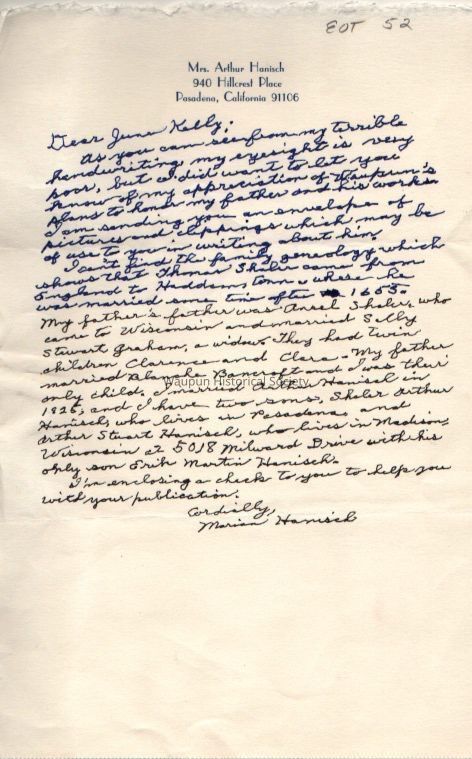 EOT 52
Mrs. Arthur Hanisch
940 Hillcrest Place
Pasadena, California 91106
Dear June Kelly;
As you can see from my terrible
handwriting my eyesight is very
poor, but I did want to let you
know of my appreciation of Waupun's
plans to honor my father and his works.
I am sending you an envelope of
pictures and clippings which may be
of use to you in writing about him.
I can't find the family geneology which
shows that Thomas Shaler came from
England to Haddam, Conn. where he
was married some time after 1653.
My father's father was Ansel Shaler, who
came to Wisconsin and married Sally
Stewart Graham, a widow. They had twin
children Clarence and Clara. My father
married Blanche Bancroft and I was their
only child. I married Arthur Hanisch in
Waupun Historical Society
1925, and I have two sons, Shaler Arthur
Hanisch, who lives in Pasadena and
Arthur Stuart Hanisch, who lives in Madison,
Wisconsin at 5018 Milward Drive with his
only son Erik Martin Hanisch.
I'm enclosing a check to you to help you
with your publication.
Cordially,
Marian Hanisch